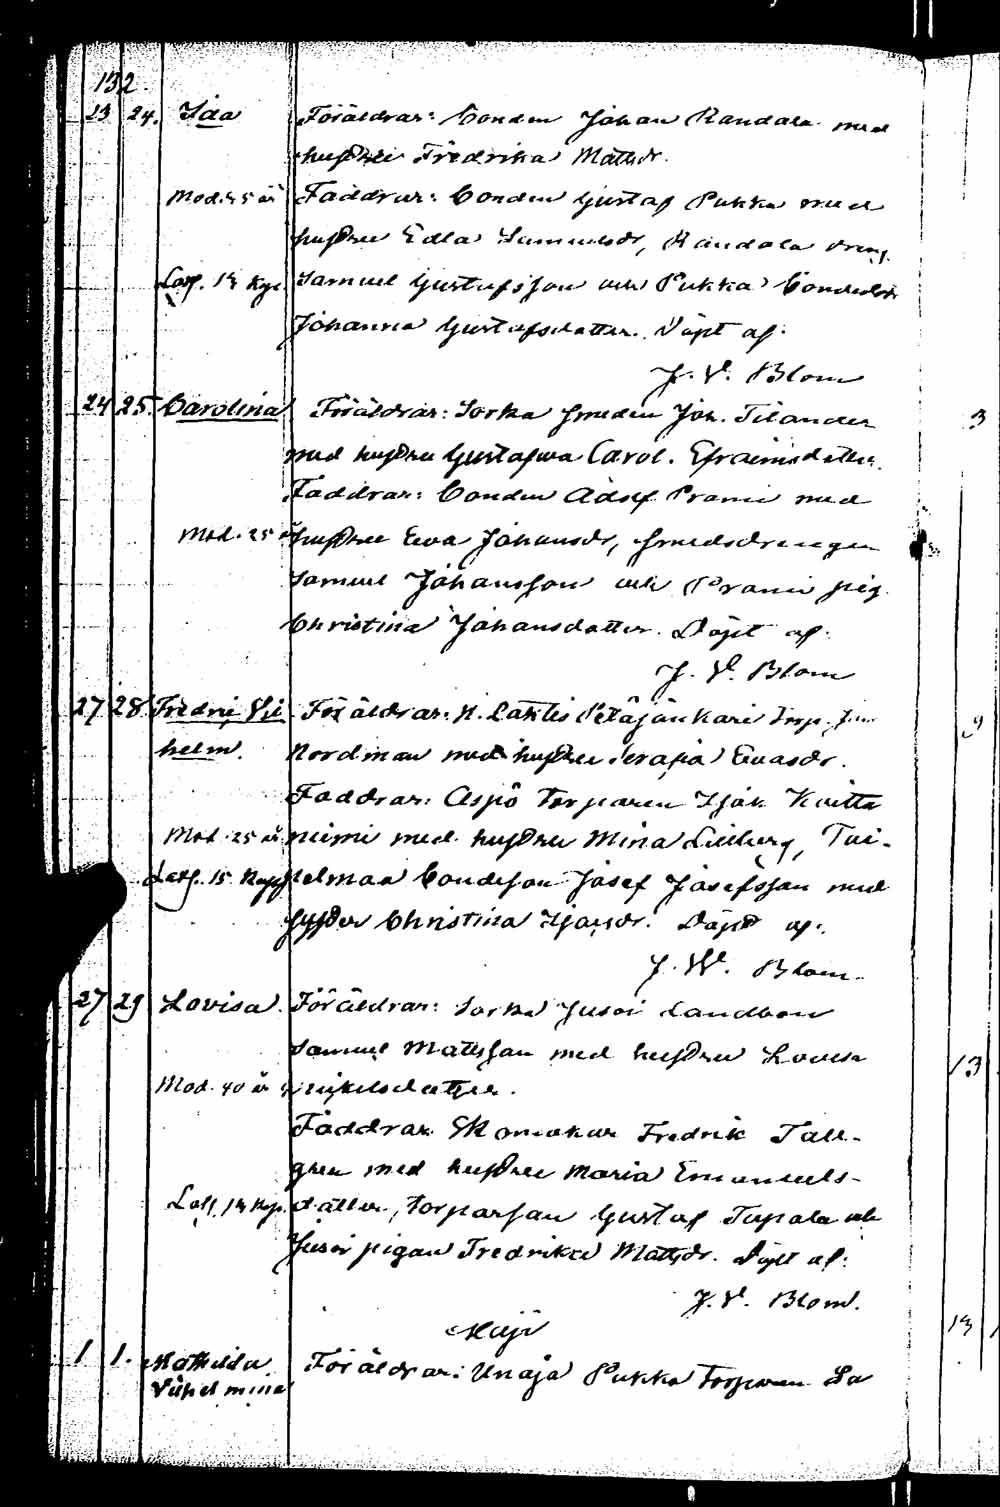 132.
23 24. Ida Föräldrar: Bonden Johan Randala med
hustru Fredrika Mattsdr.
Mod. 35 år Faddrar: Bonden Gustaf Pukka med
hustru Edla Samuelsdr, Randala dreng.
Samuel Gustafsson och Pukka Bondedotr
Johanna Gustafsdotter. Döpt af:
J. V. Blom
24 25. Carolina Föräldrar: Sorka smeden Joh. Tilander
med hustru Gustafva Carol. Efraimsdotter.
Faddrar: Bonden Adolf Prami med
Mod. 25 år hustru Eva Johansdr, smedsdrengen
Samuel Johansson och Prami pig.
Christina Johansdotter. Döpt af:
J. V. Blom
27 28 Fredric Vil Föräldrar: N. Lahtis Petäjänkari Torp.
helm. Nordman med hustru Serafia Evasdr.
Faddrar: Aspö Torparen Isak Kvitta
Mod. 25 år niemi med hustru Mina Lilberg, Tai-
palmaa Bondeson Josef Josefsson med
syster Christina Isaksdr. Döpt af:
J. W. Blom.
27 29 Lovisa. Föräldrar: Sorka Jusoi Landbon
Samuel Mattsson med hustru Lovisa
Mod. 40 år Mickelsdotter.
Faddrar: Skomakar Fredrik Tall-
gren med hustru Maria Emanuels-
dotter, torparson Gustaf Tupala och
Jusoi pigan Fredrika Mattsdr. Döpt af:
J. V. Blom.
Maji
1 1. Mathilda Föräldrar: Unaja Pukka Torparen Sa
Vilhelmina
3
9
13
13